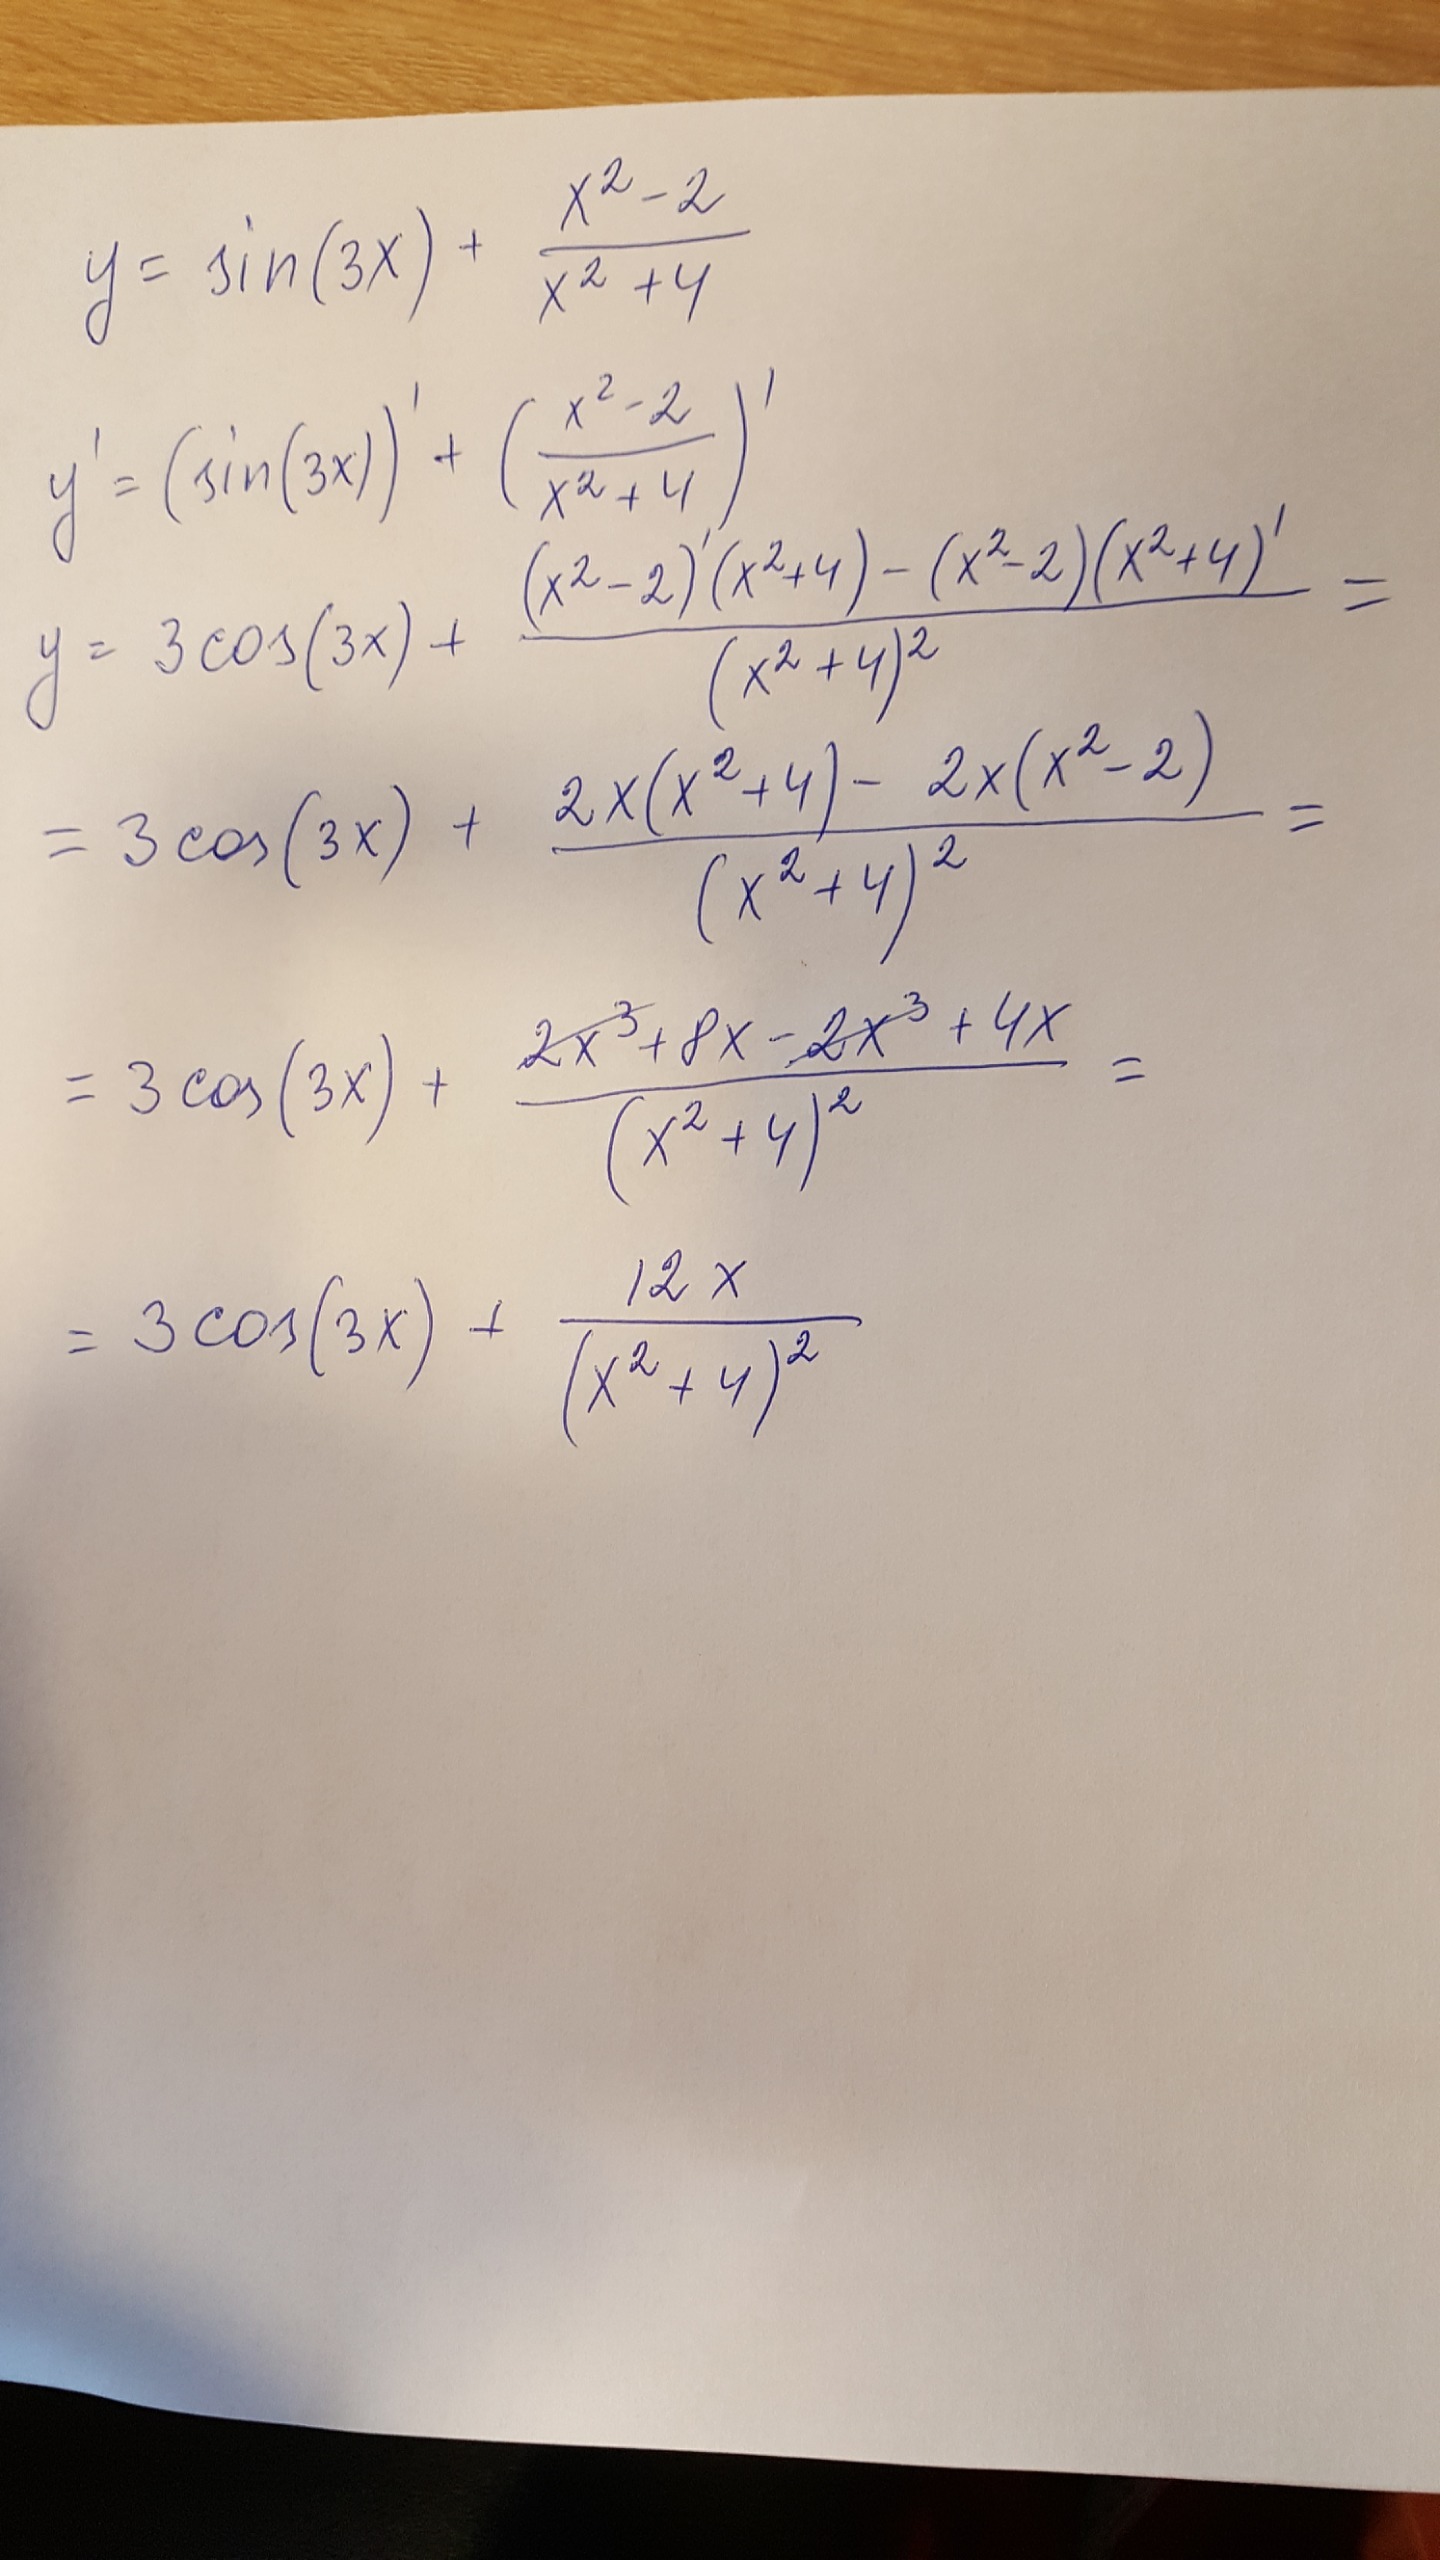 y = sin(3x) + (x² - 2)/(x² + 4)
y' = (sin(3x))' + ((x² - 2)/(x² + 4))'
y = 3cos(3x) + ((x² - 2)'(x² + 4) - (x² - 2)(x² + 4)')/(x² + 4)² =
= 3cos(3x) + (2x(x² + 4) - 2x(x² - 2))/(x² + 4)² =
= 3cos(3x) + (2x³ + 8x - 2x³ + 4x)/(x² + 4)² =
= 3cos(3x) + 12x/(x² + 4)²